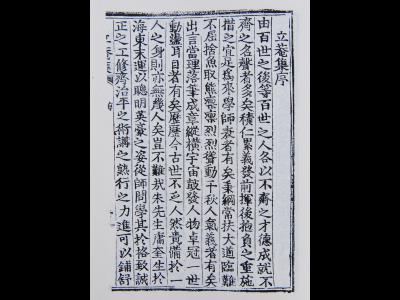 立菴集序
由百世之後等百世之人各以不齊之才德成就不
齊之名聲者多矣積仁累義發前揮後抱負之重施
措之宜足爲來學師表者有矣秉綱常扶大道臨難
不屈捨魚取熊凜凜烈烈聳動千秋人氣義者有矣
出言當理落筆成章縱橫宇宙鼓發人物卓冠一世
動盪耳目者有矣歷歷今古世不乏人然責備於一
人之身則亦無幾人矣豈不難哉朱先生庸奎生於
海東末運以聰明英豪之姿從師問學其於格致誠
正之工修齊治平之術講之熟行之力進可以鋪舒